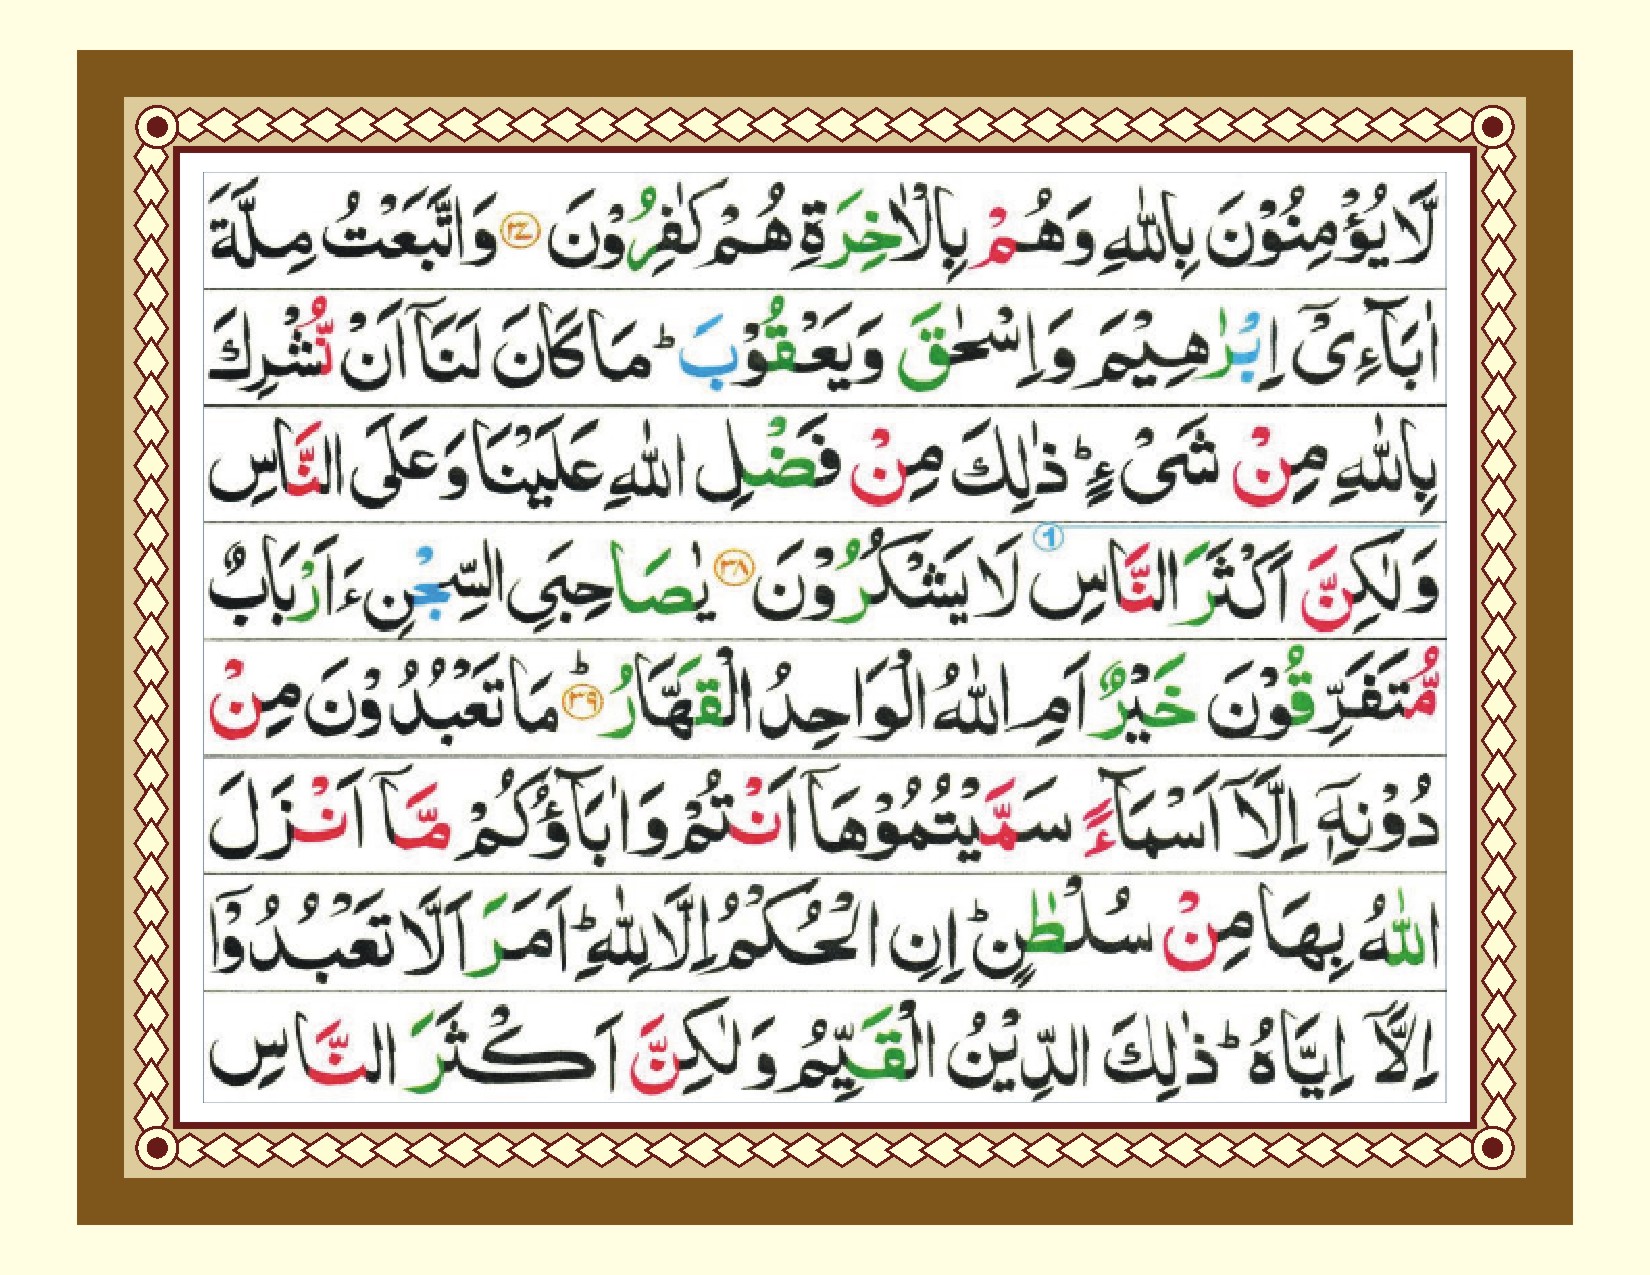 لَّا يُؤْمِنُوْنَ بِاللّٰهِ وَهُمْ بِالْاٰخِرَةِ هُمْ كٰفِرُوْنَ ۝٣٧ وَاتَّبَعْتُ مِلَّةَ
اٰبَآءِیْۤ اِبْرٰهِيْمَ وَاِسْحٰقَ وَيَعْقُوْبَ ؕ مَا كَانَ لَنَاۤ اَنْ نُّشْرِكَ
بِاللّٰهِ مِنْ شَیْءٍ ؕ ذٰلِكَ مِنْ فَضْلِ اللّٰهِ عَلَيْنَا وَعَلَی النَّاسِ
وَلٰكِنَّ اَكْثَرَ النَّاسِ ① لَا يَشْكُرُوْنَ ۝٣٨ يٰصَاحِبَیِ السِّجْنِ ءَاَرْبَابٌ
مُّتَفَرِّقُوْنَ خَيْرٌ اَمِ اللّٰهُ الْوَاحِدُ الْقَهَّارُ ؕ ۝٣٩ مَا تَعْبُدُوْنَ مِنْ
دُوْنِهٖۤ اِلَّاۤ اَسْمَآءً سَمَّيْتُمُوْهَاۤ اَنْتُمْ وَاٰبَآؤُكُمْ مَّاۤ اَنْزَلَ
اللّٰهُ بِهَا مِنْ سُلْطٰنٍ ؕ اِنِ الْحُكْمُ اِلَّا لِلّٰهِ ؕ اَمَرَ اَلَّا تَعْبُدُوْۤا
اِلَّاۤ اِيَّاهُ ؕ ذٰلِكَ الدِّيْنُ الْقَيِّمُ وَلٰكِنَّ اَكْثَرَ النَّاسِ